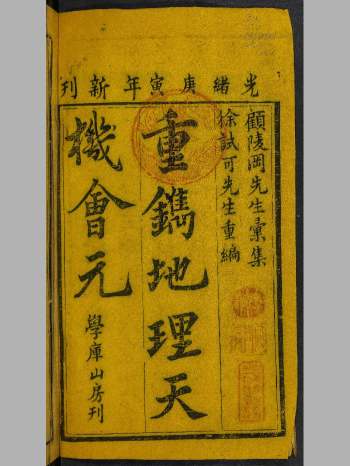 光緒庚寅年新刊
顧陵岡先生彙集
徐試可先生重編
重鐫地理天
機會元
學庫山房刊